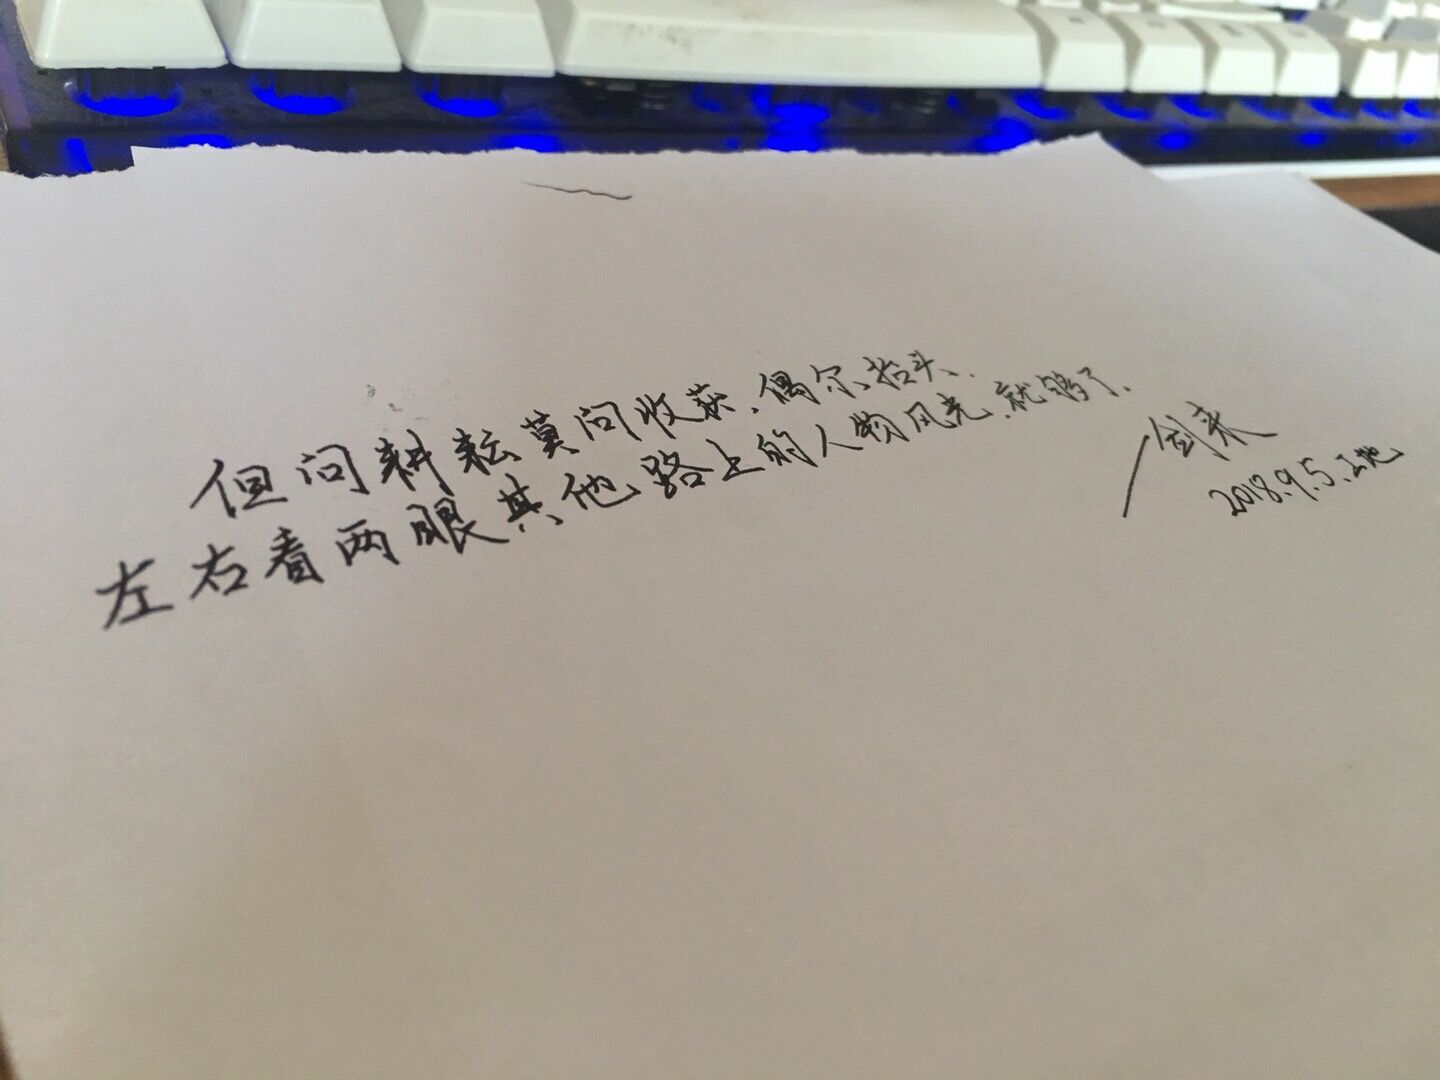 但问耕耘莫问收获、偶尔抬头、
左右看两眼其他路上的人物风光、就够了、
/剑来
2018.9.5.工地